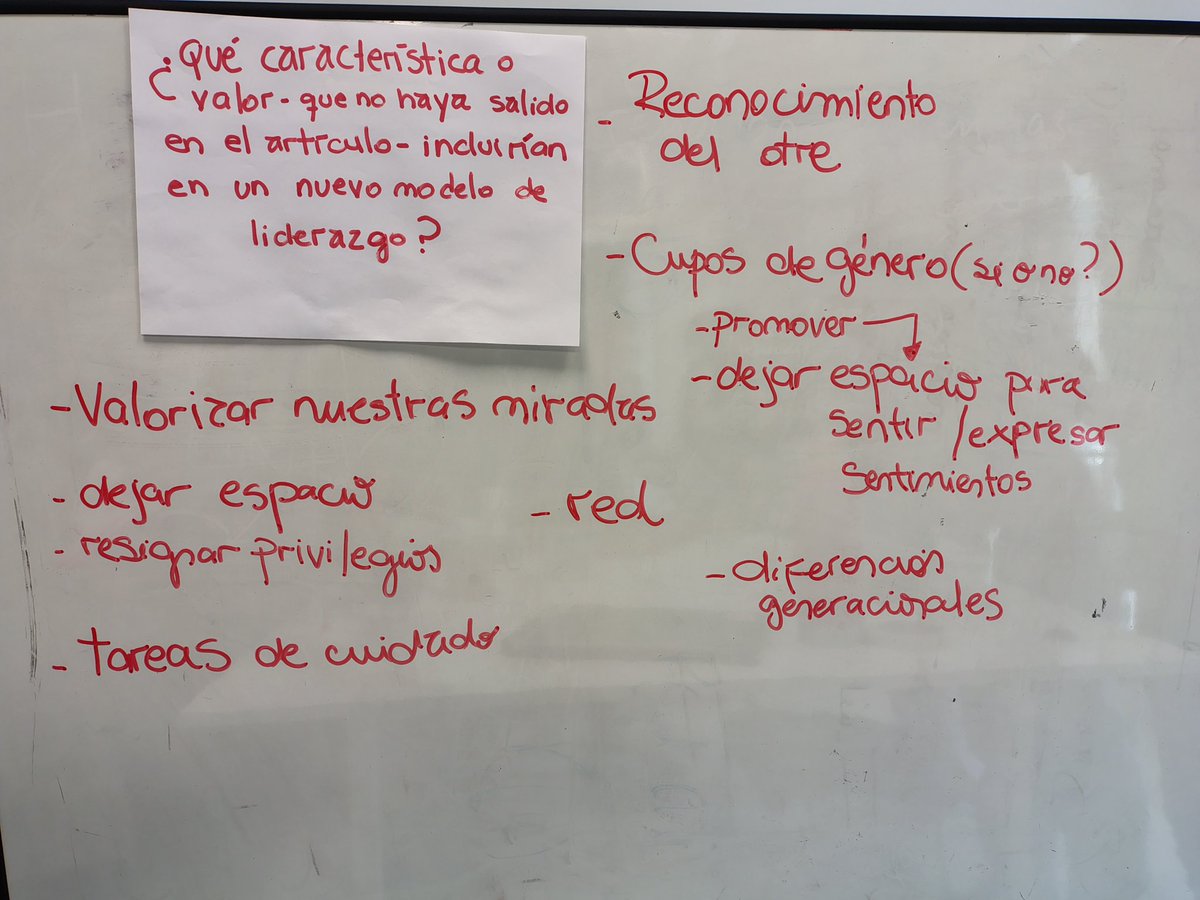 ¿Qué característica o
valor - que no haya salido
en el artículo - incluirían
en un nuevo modelo de
liderazgo?
- Reconocimiento
del otre
- Cupos de género (si o no?)
- promover
- dejar espacio para
sentir / expresar
sentimientos
- Valorizar nuestras miradas
- dejar espacio
- resignar privilegios
- red
- diferencias
generacionales
- tareas de cuidado